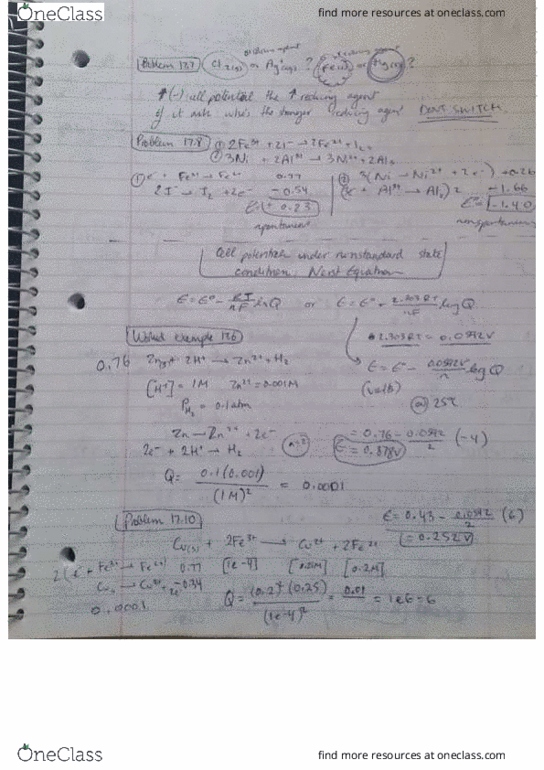 OneClass
find more resources at oneclass.com
Problem 17.7 Cl₂(g) or Ag⁺(aq) ? Fe(s) or Mg(s) ?
↑(-) cell potential the ↑ reducing agent
if it asks who's the stronger reducing agent DONT SWITCH.
Problem 17.8 ① 2Fe³⁺ + 2I⁻ → 2Fe²⁺ + I₂
② 3Ni + 2Al³⁺ → 3Ni²⁺ + 2Al
① e⁻ + Fe³⁺ → Fe²⁺ 0.77
2I⁻ → I₂ + 2e⁻ -0.54
0.23
spontaneous
② 3(Ni → Ni²⁺ + 2e⁻) +0.26
-1.66
-1.40
nonspontaneous
Cell potentials under nonstandard state
conditions: Nernst Equation
E = E° - RT/nF lnQ or E = E° - 2.303RT/nF log Q
Worked example 17.6
0.76 Zn(s) + 2H⁺ → Zn²⁺ + H₂
[H⁺] = 1M Zn²⁺ = 0.001M
P_H₂ = 0.1 atm
E = E° - 0.0592V/n log Q
(volts)
@ 25°C
Zn → Zn²⁺ + 2e⁻
2e⁻ + 2H⁺ → H₂
n=2
= 0.76 - 0.0592/2 (-4)
E = 0.878V
Q = 0.1(0.001)/(1M)² = 0.0001
Problem 17.10
Cu(s) + 2Fe³⁺ → Cu²⁺ + 2Fe²⁺
[1e-4] [0.25M] [0.2M]
E = 0.43 - 0.0592/2 (6)
= 0.252V
2(e⁻ + Fe³⁺ → Fe²⁺) 0.77
Cu → Cu²⁺ + 2e⁻ -0.34
0.0001
Q = (0.2)²(0.25)/(1e-4)² = 0.01 = 1e6 = 6
OneClass
find more resources at oneclass.com